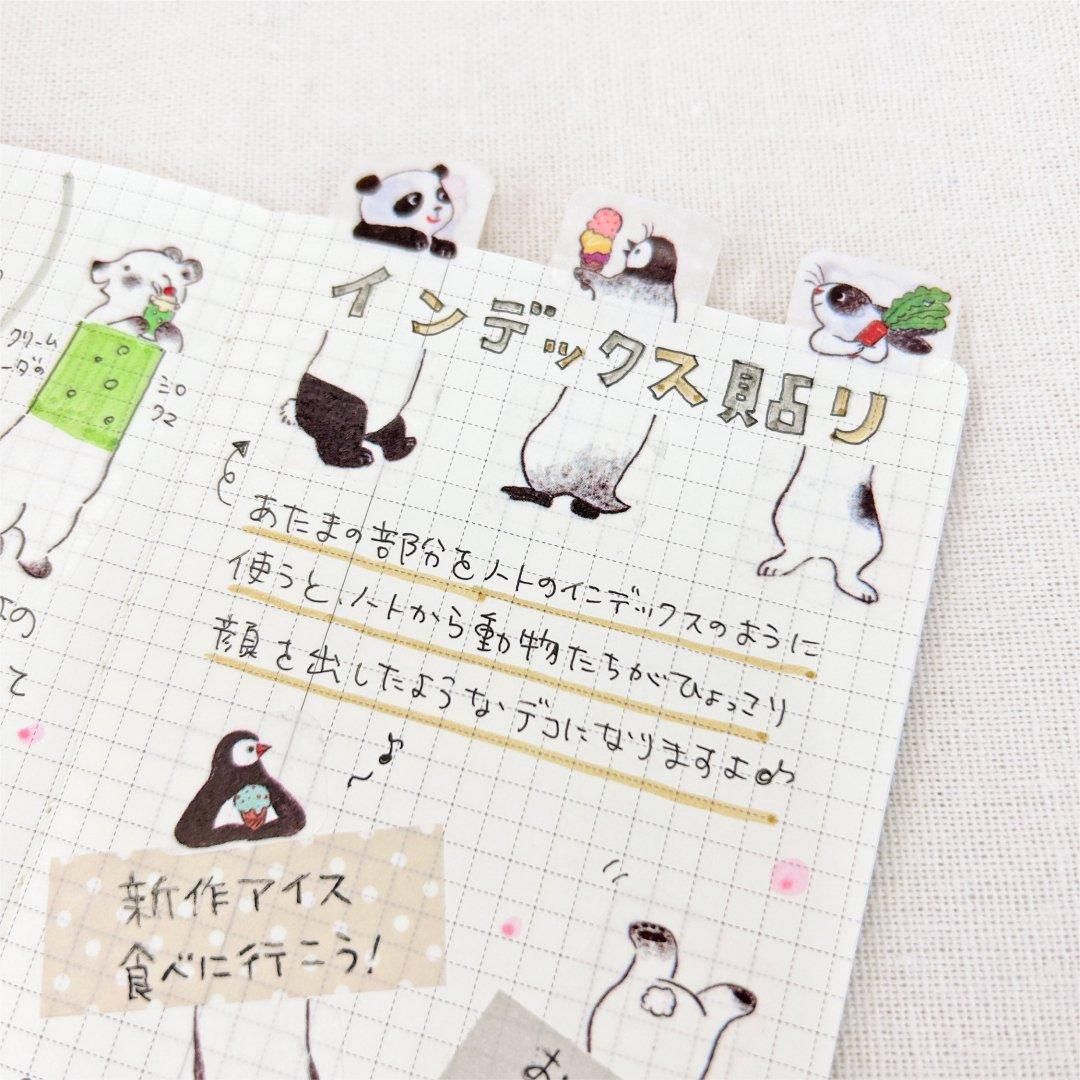 インデックス貼り
クリーム
ーダの
シロ
クマ
あたまの部分をノートのインデックスのように
使うと、ノートから動物たちがひょっこり
顔を出したようなデコになりますよ♪
の
て
新作アイス
食べに行こう!